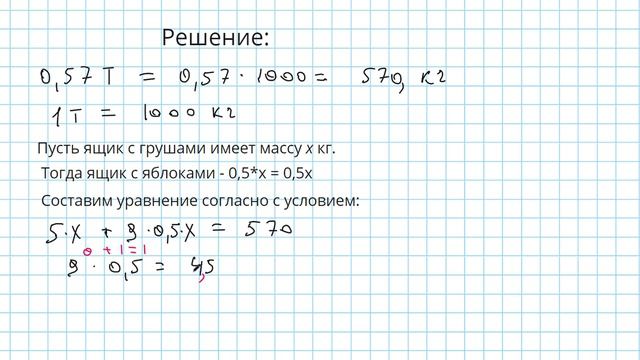 Решение:
0,57 т = 0,57 · 1000 = 570, кг
1 т = 1000 кг
Пусть ящик с грушами имеет массу x кг.
Тогда ящик с яблоками - 0,5*x = 0,5x
Составим уравнение согласно с условием:
5·x + 9·0,5·x = 570
0 + 1 = 1
9 · 0,5 = 4,5